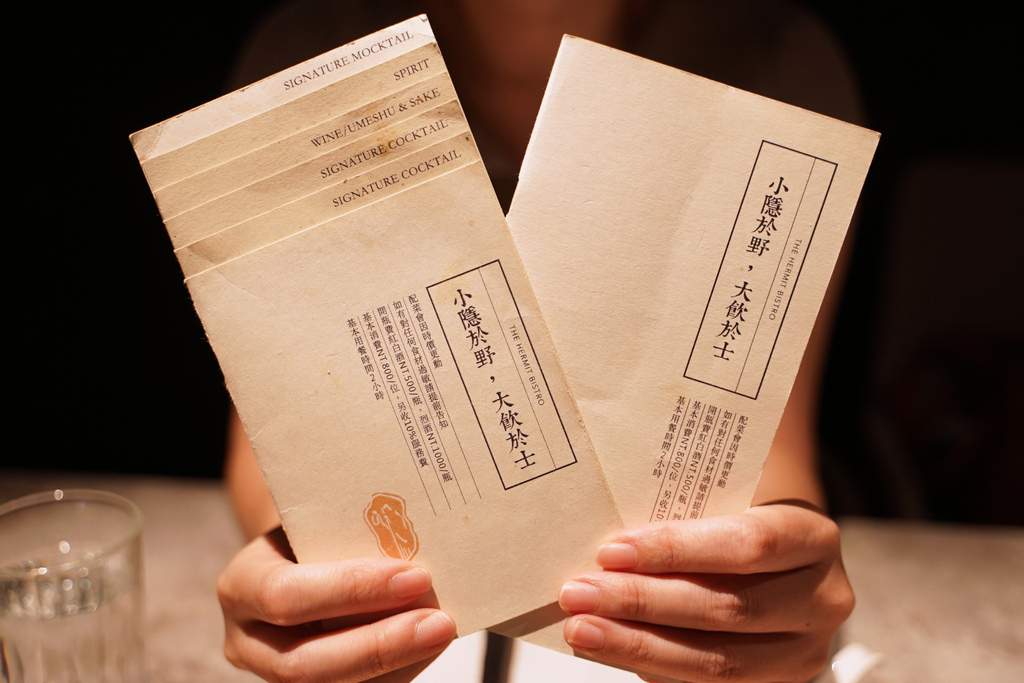 SIGNATURE MOCKTAIL
SPIRIT
WINE/UMESHU & SAKE
SIGNATURE COCKTAIL
SIGNATURE COCKTAIL
小隱於野，大飲於士
THE HERMIT BISTRO
配菜會因時價更動
如有對任何食材過敏請提前告知
開瓶費紅白酒NT 500/瓶，烈酒NT 1000/瓶
基本消費NT 800/位，另收10%服務費
基本用餐時間2小時
小隱於野，大飲於士
THE HERMIT BISTRO
配菜會因時價更動
如有對任何食材過敏請提前
開瓶費紅白酒NT 500/瓶，烈
基本消費NT 800/位，另收10
基本用餐時間2小時